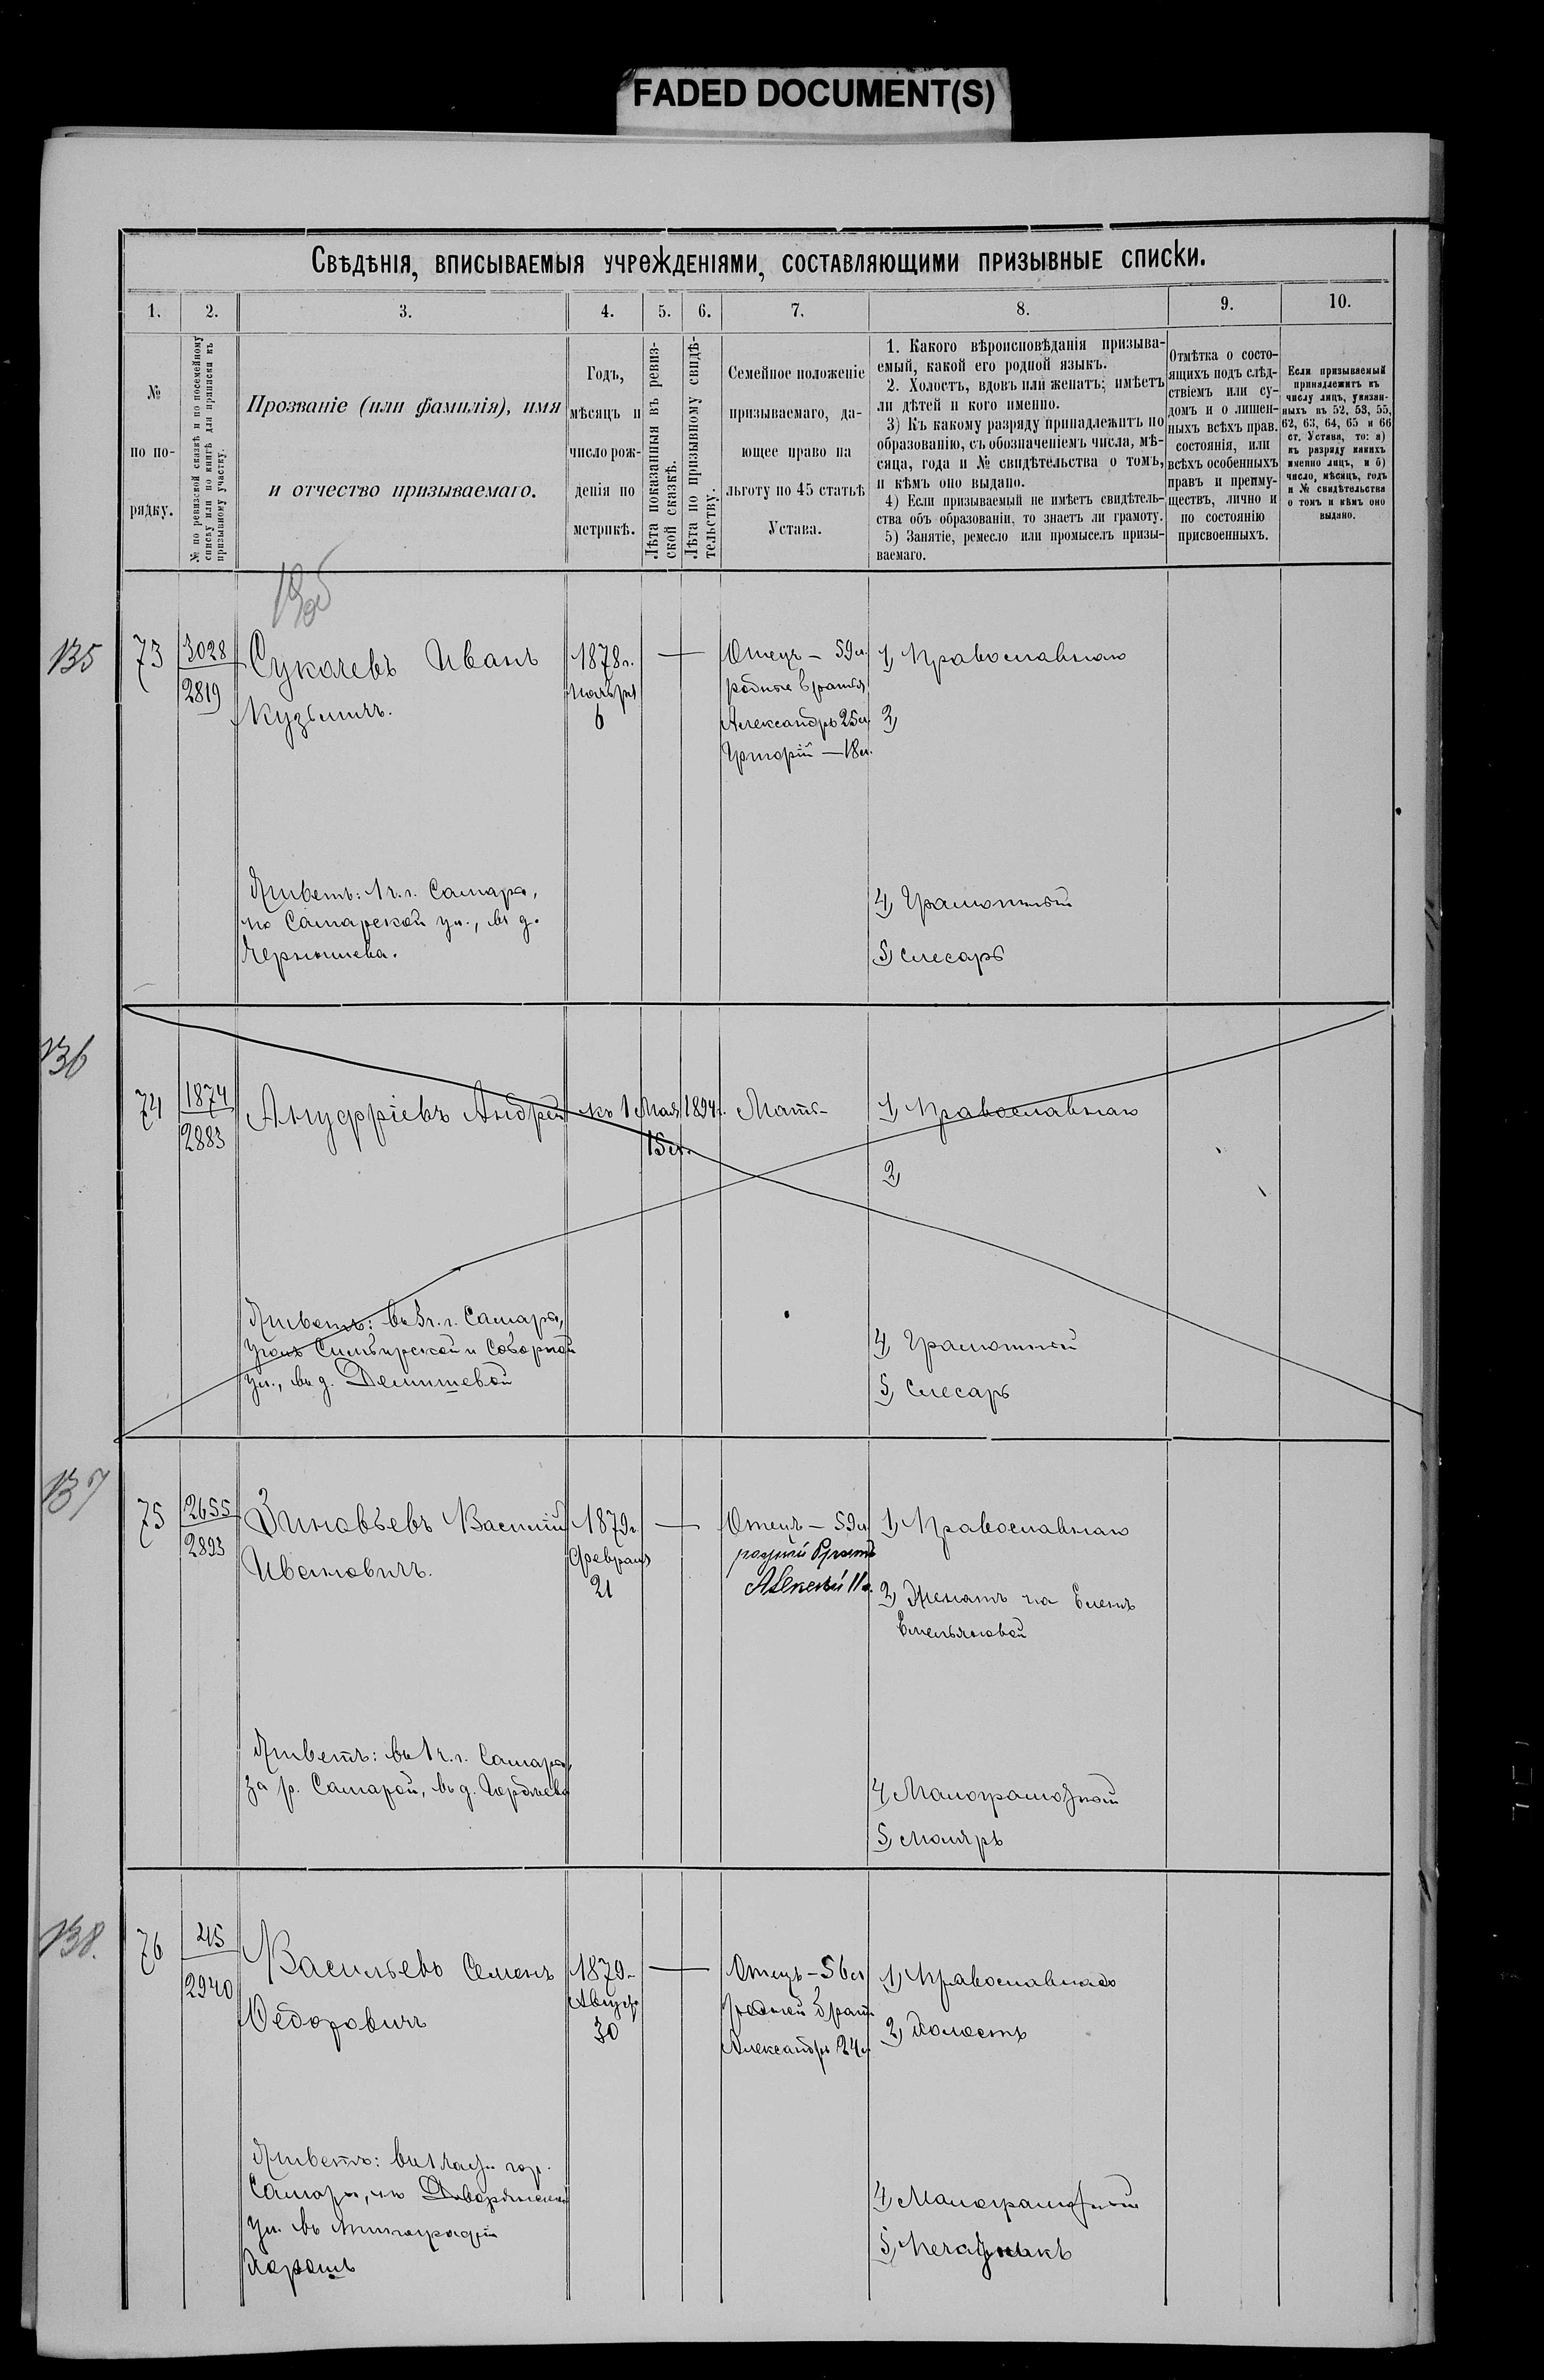 FADED DOCUMENT(S)
Свѣдѣнія, вписываемыя учрежденіями, составляющими призывные списки.
1. 2. 3. 4. 5. 6. 7. 8. 9. 10.
№
по по-
рядку.
№ по ревизской сказкѣ и по посемейному
списку или по книгѣ для приписки къ
призывному участку.
Прозваніе (или фамилія), имя
и отчество призываемаго.
Годъ,
мѣсяцъ и
число рож-
денія по
метрикѣ.
Лѣта показанныя въ ревиз-
ской сказкѣ.
Лѣта по призывному свидѣ-
тельству.
Семейное положеніе
призываемаго, да-
ющее право на
льготу по 45 статьѣ
Устава.
1. Какого вѣроисповѣданія призыва-
емый, какой его родной языкъ.
2. Холостъ, вдовъ или женатъ; имѣетъ
ли дѣтей и кого именно.
3) Къ какому разряду принадлежитъ по
образованію, съ обозначеніемъ числа, мѣ-
сяца, года и № свидѣтельства о томъ,
и кѣмъ оно выдано.
4) Если призываемый не имѣетъ свидѣтель-
ства объ образованіи, то знаетъ ли грамоту.
5) Занятіе, ремесло или промыселъ призы-
ваемаго.
Отмѣтка о состо-
ящихъ подъ слѣд-
ствіемъ или су-
домъ и о лишен-
ныхъ всѣхъ прав.
состоянія, или
всѣхъ особенныхъ
правъ и преиму-
ществъ, лично и
по состоянію
присвоенныхъ.
Если призываемый
принадлежитъ къ
числу лицъ, указан-
ныхъ въ 52, 53, 55,
62, 63, 64, 65 и 66
ст. Устава, то: а)
къ разряду какихъ
именно лицъ, и б)
число, мѣсяцъ, годъ
и № свидѣтельства
о томъ и кѣмъ оно
выдано.
135
73
3028
2819
Сукачевъ Иванъ
Кузьмичъ.
1878 г.
Ноября
6
Отецъ – 59 л.
родные братья
Александръ 25 л.
Григорій – 18 л.
1, Православнаго
2,
Живетъ: 1 ч. г. Самары,
по Самарской ул., въ д.
Чернышева.
4, Грамотный
5, Слесарь
136
74
1874
2883
Ануфріевъ Андрей
къ 1 Мая 1894 г.
15 л.
Мать
1, Православнаго
2,
Живетъ: въ 3 ч. г. Самары,
уголъ Симбирской и Соборной
ул., въ д.
4, Грамотный
5, Слесарь
137
75
2655
2893
Зиновьевъ Василій
Ивановичъ.
1879 г.
Февраля
21
Отецъ – 59 л.
родной братъ
Алексѣй 11 л.
1, Православнаго
2, Женатъ на Еленѣ
Емельяновой
Живетъ: въ 1 ч. г. Самары,
за р. Самарой, въ д.
4, Малограмотный
5, Маляръ
138.
76
215
2940
Васильевъ Семенъ
Федоровичъ
1879 г.
Август.
30
Отецъ – 56 л.
родной братъ
Александръ 24 л.
1, Православнаго
2, Холостъ
Живетъ: въ 1 части гор.
Самары, по Дворянской
ул. въ типографіи
4, Малограмотный
5, Печатникъ